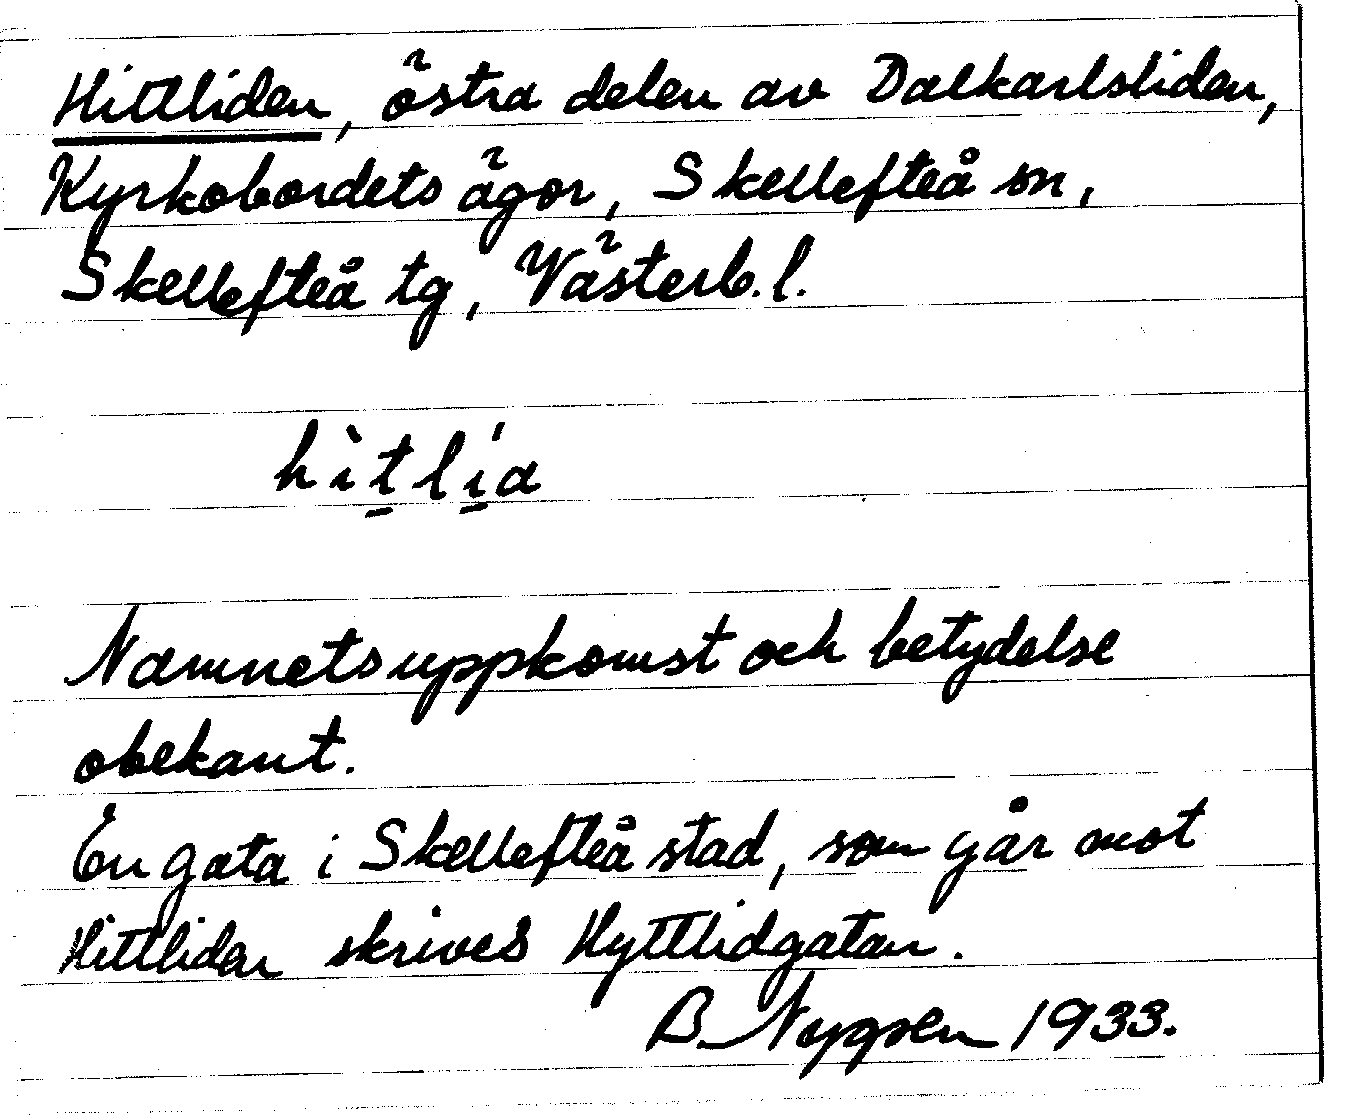 Hittliden, östra delen av Dalkarlsliden,
Kyrkobordets ägor, Skellefteå sn,
Skellefteå tg, Västerb. l.
hìtlía
Namnets uppkomst och betydelse
obekant.
En gata i Skellefteå stad, som går mot
Hittliden skrives Hyttlidgatan.
B. 1933.